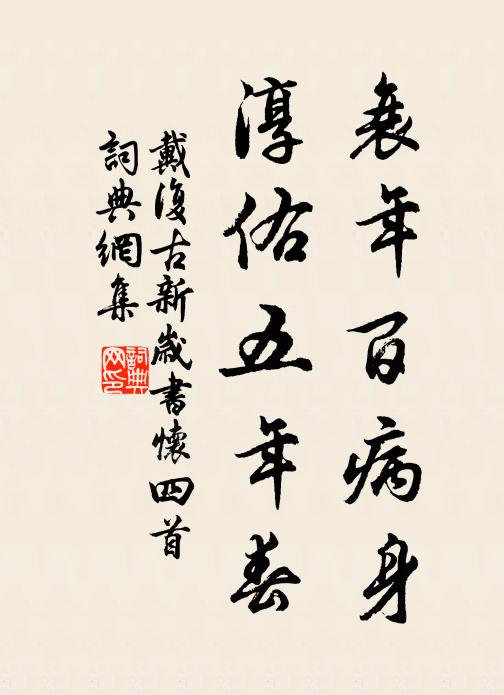 衰年百病身
淳佑五年春
戴復古新歲書懷四首
詞典網集
詞典
网印